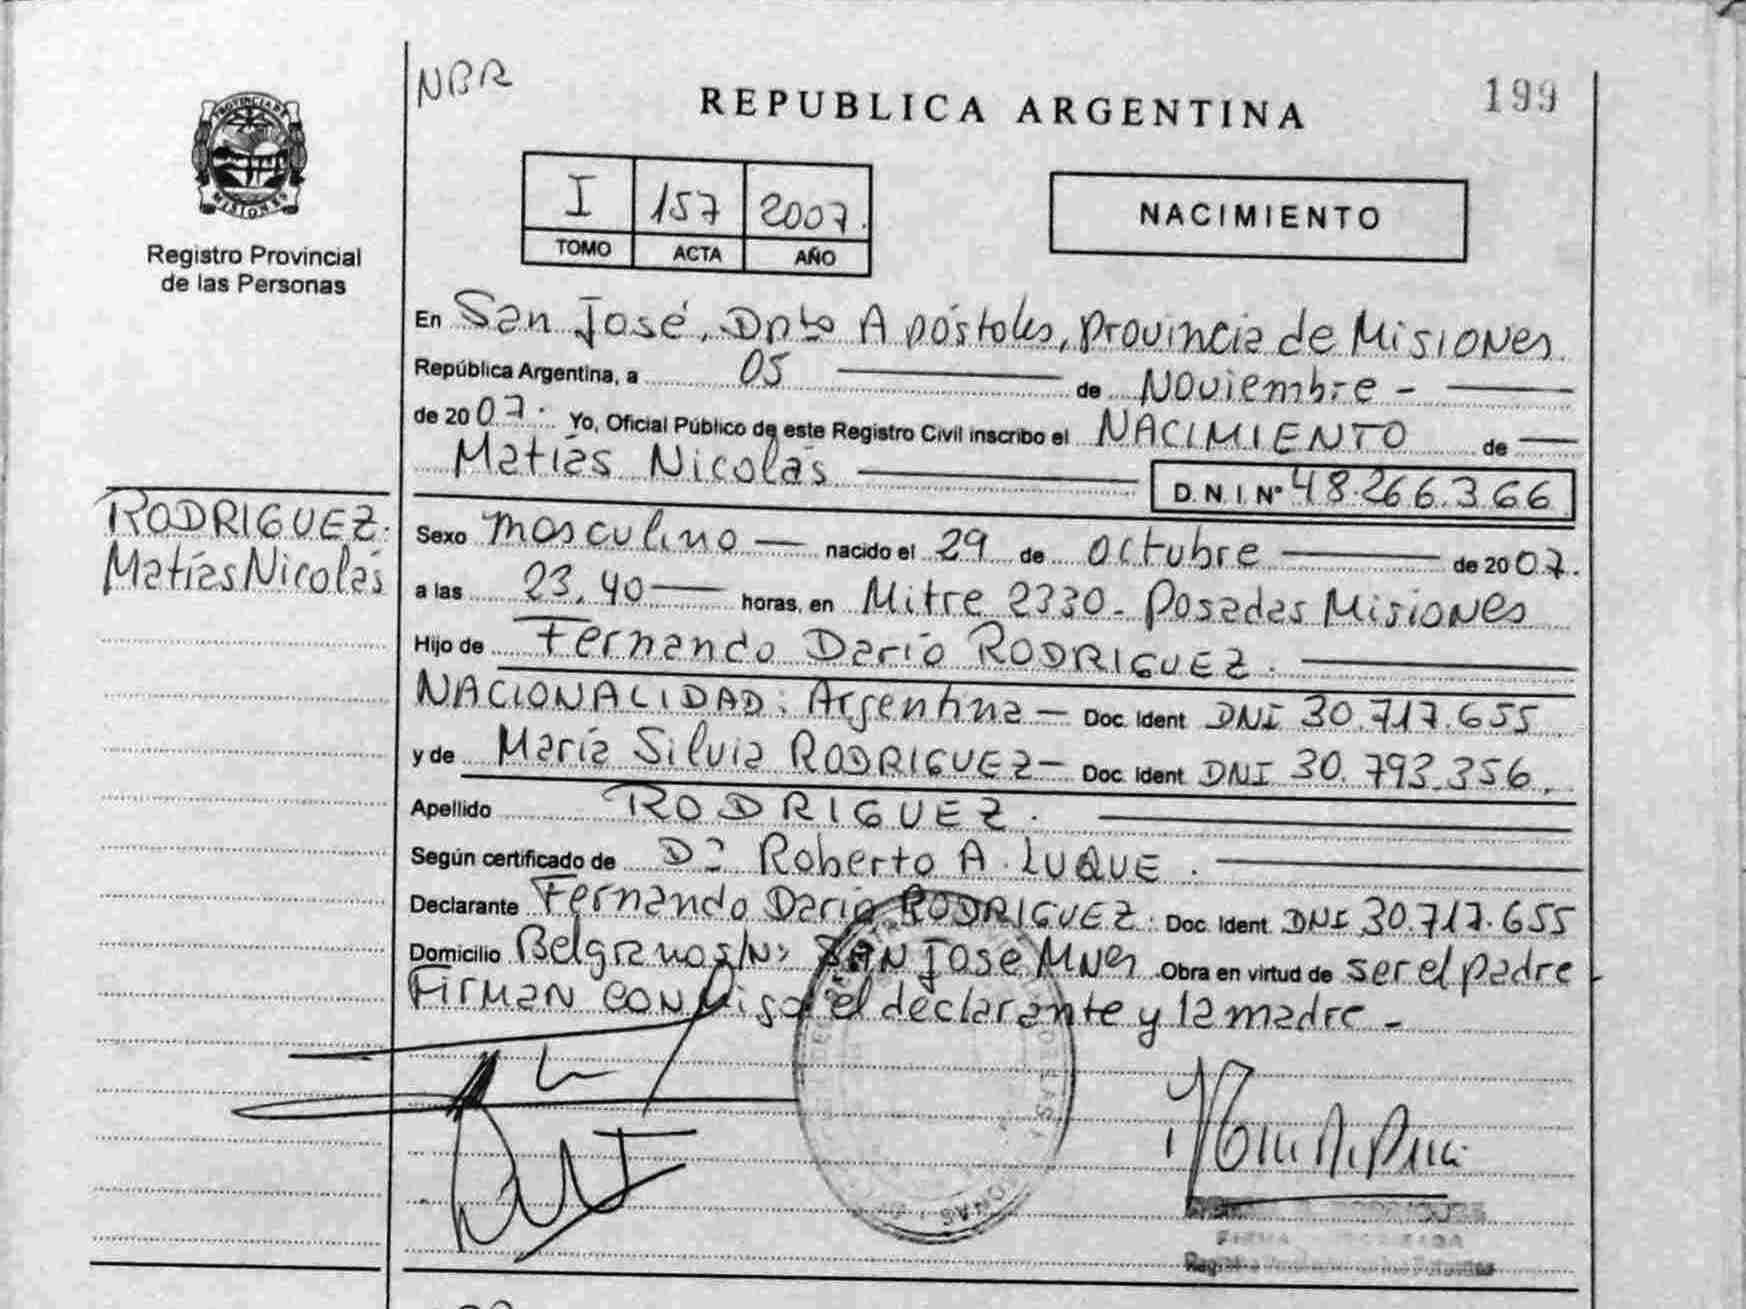 NBR
REPUBLICA ARGENTINA
199
PROVINCIA DE
MISIONES
Registro Provincial
de las Personas
I 157 2007.
TOMO ACTA AÑO
NACIMIENTO
En San José, Dpto Apóstoles, Provincia de Misiones
República Argentina, a 05 de Noviembre -
de 2007. Yo, Oficial Público de este Registro Civil inscribo el NACIMIENTO de
Matías Nicolás D.N.I. Nº 48.266.366
RODRIGUEZ.
Matías Nicolás
Sexo masculino nacido el 29 de octubre de 2007.
a las 23,40 horas, en Mitre 2330 - Posadas Misiones
Hijo de Fernando Darío RODRIGUEZ.
NACIONALIDAD: Argentina - Doc. Ident DNI 30.717.655
y de María Silvia RODRIGUEZ - Doc. Ident DNI 30.793.356.
Apellido RODRIGUEZ.
Según certificado de Dr Roberto A. LUQUE.
Declarante Fernando Darío RODRIGUEZ. Doc. Ident. DNI 30.717.655
Domicilio Belgrano s/Nº SAN José Mnes Obra en virtud de ser el padre
Firman conmigo el declarante y la madre -